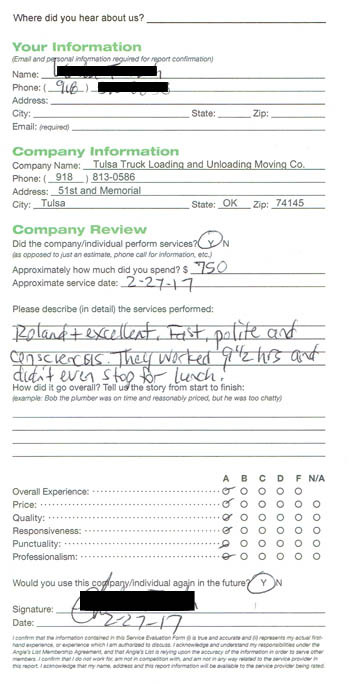 Where did you hear about us?
Your Information
(Email and personal information required for report confirmation)
Name:
Phone: ( 918 )
Address:
City: State: Zip:
Email: (required)
Company Information
Company Name: Tulsa Truck Loading and Unloading Moving Co.
Phone: ( 918 ) 813-0586
Address: 51st and Memorial
City: Tulsa State: OK Zip: 74145
Company Review
Did the company/individual perform services? Y N
(as opposed to just an estimate, phone call for information, etc.)
Approximately how much did you spend? $ 750
Approximate service date: 2-27-17
Please describe (in detail) the services performed:
Roland + excellent. Fast, polite and
conscienciosis. They worked 9 1/2 hrs and
didn't even stop for lunch.
How did it go overall? Tell us the story from start to finish:
(example: Bob the plumber was on time and reasonably priced, but he was too chatty)
A B C D F N/A
Overall Experience:
Price:
Quality:
Responsiveness:
Punctuality:
Professionalism:
Would you use this company/individual again in the future? Y N
Signature:
Date: 2-27-17
I confirm that the information contained in this Service Evaluation Form (i) is true and accurate and (ii) represents my actual first-
hand experience, or experience which I am authorized to discuss. I acknowledge and understand my responsibilities under the
Angie's List Membership Agreement, and that Angie's List is relying upon the accuracy of the information in order to serve other
members. I confirm that I do not work for, am not in competition with, and am not in any way related to the service provider in
this report. I acknowledge that my name, address and this report information will be available to the service provider being rated.